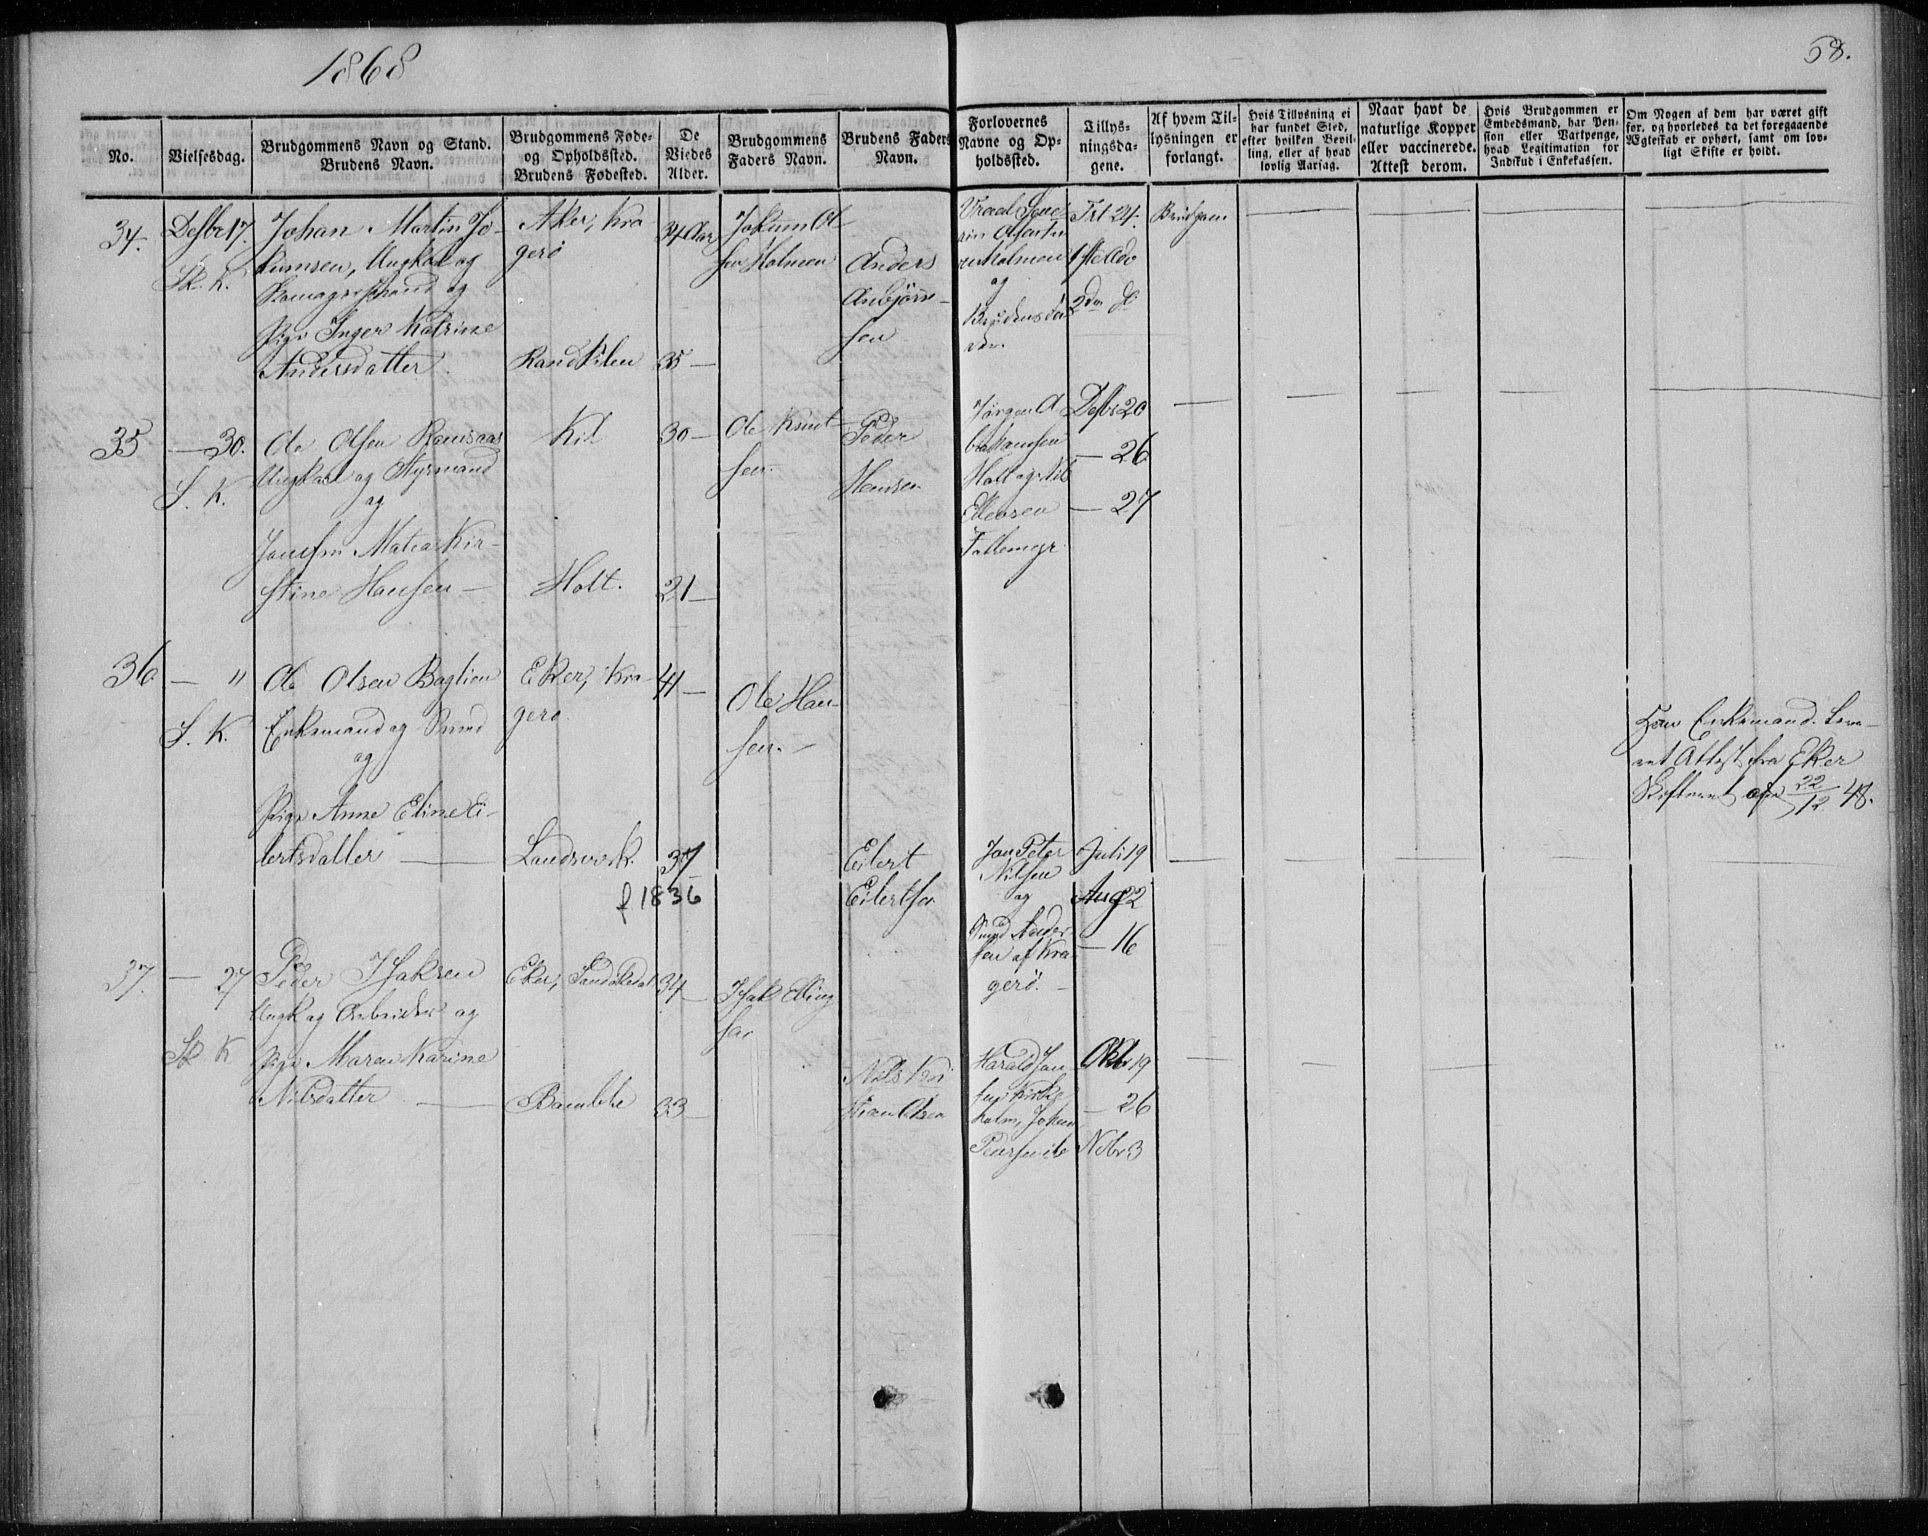 1868
58.
No.
Vielsesdag.
Brudgommens Navn og Stand.
Brudens Navn.
Brudgommens Føde-
og Opholdssted.
Brudens Fødested.
De
Viedes
Alder.
Brudgommens
Faders Navn.
Brudens Faders
Navn.
Forlovernes
Navne og Op-
holdssted.
Tillys-
ningsda-
gene.
Af hvem Til-
lysningen er
forlangt.
Hvis Tillysning ei
har fundet Sted,
efter hvilken Bevil-
ling, eller af hvad
lovlig Aarsag.
Naar havt de
naturlige Kopper
eller vaccinerede.
Attest derom.
Hvis Brudgommen er
Embedsmand, har Pen-
sion eller Vartpenge,
hvad Legitimation for
Indskud i Enkekassen.
Om Nogen af dem har været gift
før, og hvorledes da det foregaaende
Ægteskab er ophørt, samt om lov-
ligt Skifte er holdt.
34.
Desbr 17.
Sk. K.
Johan Martin Jo-
kumsen, Ungkal og
og
Pige Inger Katrine
Andersdatter
Aker, Kra
gerø
Randkilen
34 Aar
35 —
Jokum Ol
sen Holmen
Anders
Anbjørn-
sen
Holmen
og
Brudens
Brudgom
35
— 30.
S. K.
Ole Olsen Ramsaas
Ungkal og Styrmand
og
Josefin Matea Kir-
stine Hansen —
Kil
Holt.
30 —
21 —
Ole Knut
sen.
Peder
Hansen
Jørgen A
Holt og Nils
Ellevsen
Desbr 20
— 26
— 27
36
— "
S. K.
Ole Olsen Baglien
Enkemand og Smed
og
Pige Anne Eline Ei-
lertsdatter —
Eker, Kra-
gerø
Landsverk.
41 —
37
f 1836
Ole Han-
sen. —
Eilert
Eilertsen
Jan Peter
Nilsen
og
Smed Ander
sen af Kra
gerø. —
Juli 19
Aug 22
— 16
Han Enkemand. Leve-
ret Attest fra Eker
Skifteret af 22/12 48.
37.
— 27
Sk K
Peder Isaksen
Ungk og Arbeider og
Pige Maren Karine
Nilsdatter —
Eker, Sandøkedal
Bamble
34 —
33 —
Isak Elling
sen
Nils Kri
stian Olsen
Harald Jan
sen Kirke
holm, Johan
Oktbr 19
— 26
Nobr 3